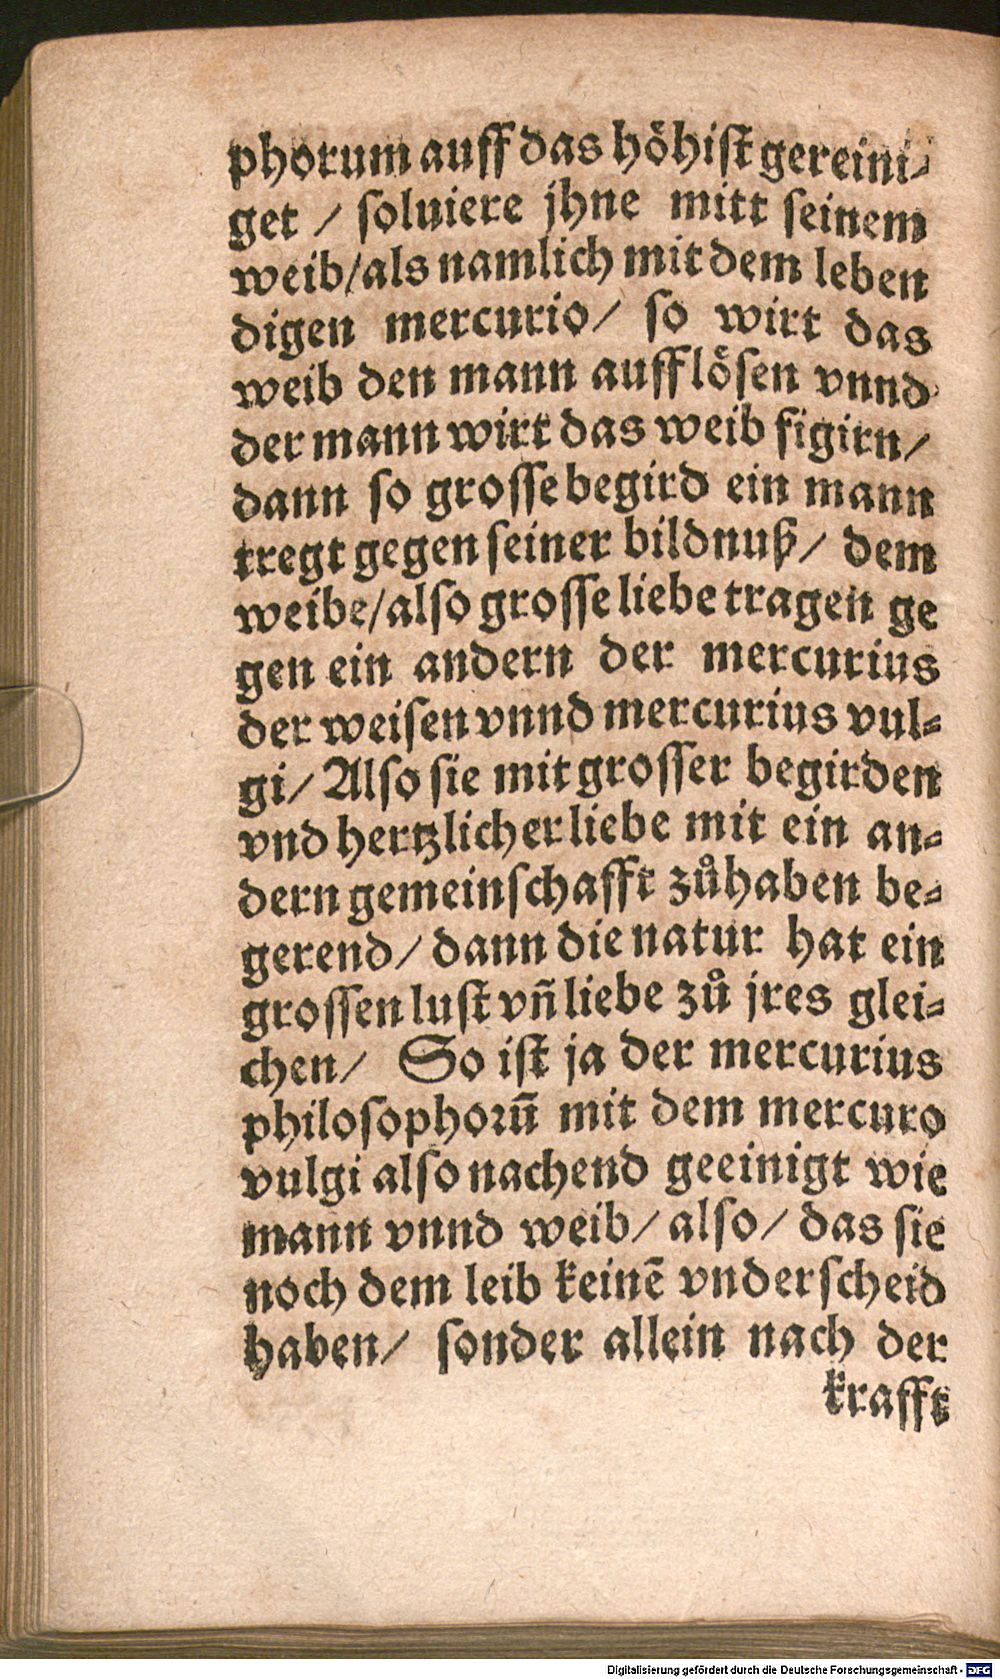 phorum auff das höhist gereini-
get / soluiere jhne mitt seinem
weib/als namlich mit dem leben
digen mercurio/ so wirt das
weib den mann aufflösen vnnd
der mann wirt das weib figirn/
dann so grosse begird ein mann
tregt gegen seiner bildnuß/ dem
weibe/also grosse liebe tragen ge
gen ein andern der mercurius
der weisen vnnd mercurius vul-
gi/ Also sie mit grosser begirden
vnd hertzlicher liebe mit ein an-
dern gemeinschafft zůhaben be-
gerend/ dann die natur hat ein
grossen lust vñ liebe zů jres glei-
chen/ So ist ja der mercurius
philosophorũ mit dem mercuro
vulgi also nachend geeinigt wie
mann vnnd weib/ also/ das sie
noch dem leib keinẽ vnderscheid
haben/ sonder allein nach der
krafft
Digitalisierung gefördert durch die Deutsche Forschungsgemeinschaft - DFG